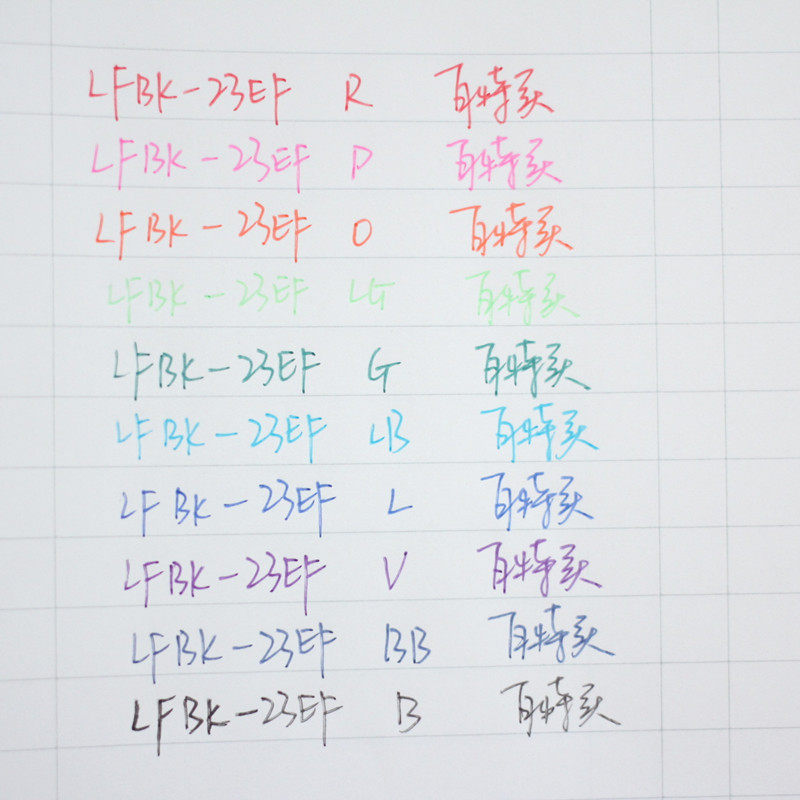 LFBK-23EF R 百特买
LFBK-23EF P 百特买
LFBK-23EF O 百特买
LFBK-23EF LG 百特买
LFBK-23EF G 百特买
LFBK-23EF LB 百特买
LFBK-23EF L 百特买
LFBK-23EF V 百特买
LFBK-23EF BB 百特买
LFBK-23EF B 百特买